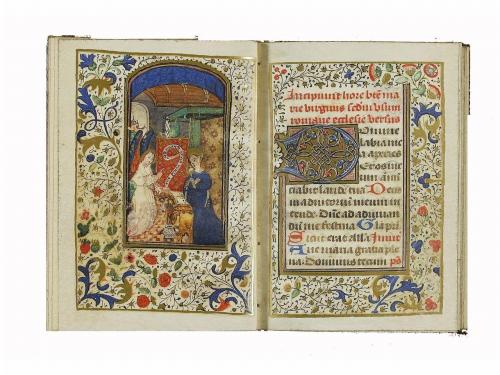 Incipiunt hore bte ma
rie virginis scdm usum
romane ecclesie versus
Domine
labia me
a aperies
Et os me
um ann
ciabit laudē tuā Deus
in adiutoriū meum in
tende Dñe ad adiuuan
dū me festina Gła pri
Sicut erat alla Inuit
Aue maria gratia ple
na Dominus tecum ps